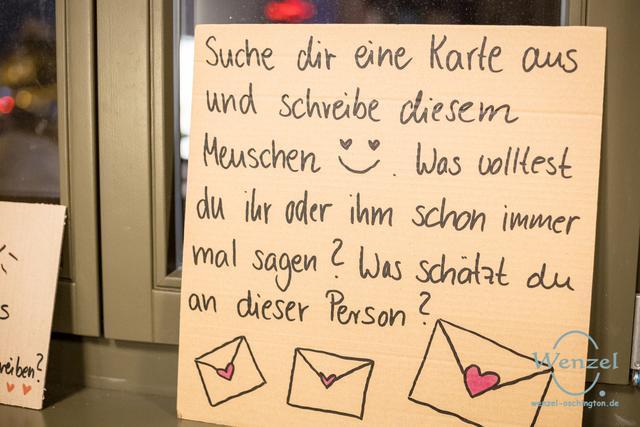 Suche dir eine Karte aus
und schreibe diesem
Menschen . Was volltest
du ihr oder ihm schon immer
mal sagen? Was schätzt du
an dieser Person?
s
reiben?
Wenzel
wenzel-oschington.de